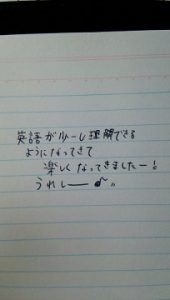 英語が少ーし理解できる
ようになってきて
楽しくなってきましたー!
うれしーー♪。